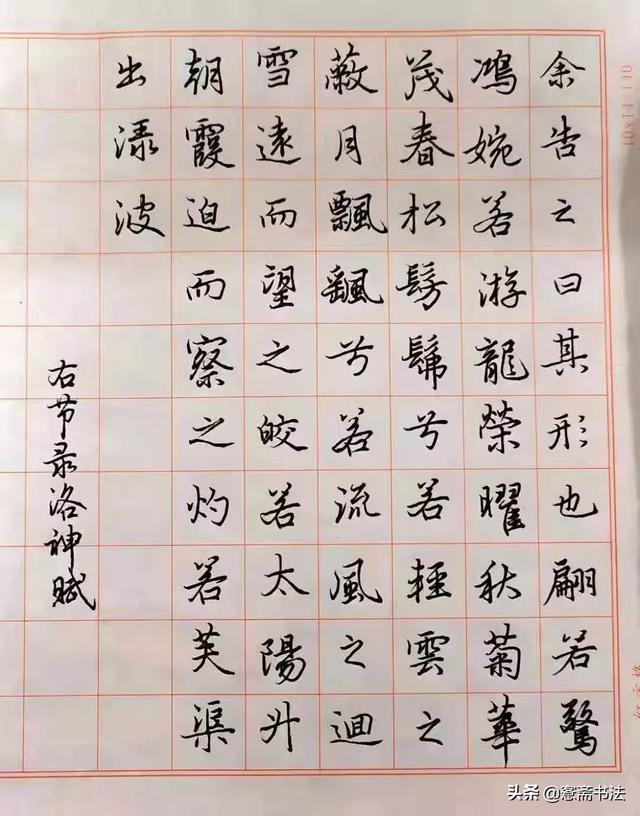 余告之曰其形也翩若驚
鴻婉若游龍榮曜秋菊華
茂春松髣髴兮若輕雲之
蔽月飄颻兮若流風之迴
雪遠而望之皎若太陽升
朝霞迫而察之灼若芙渠
出淥波
右节录洛神赋
头条@窓斋书法